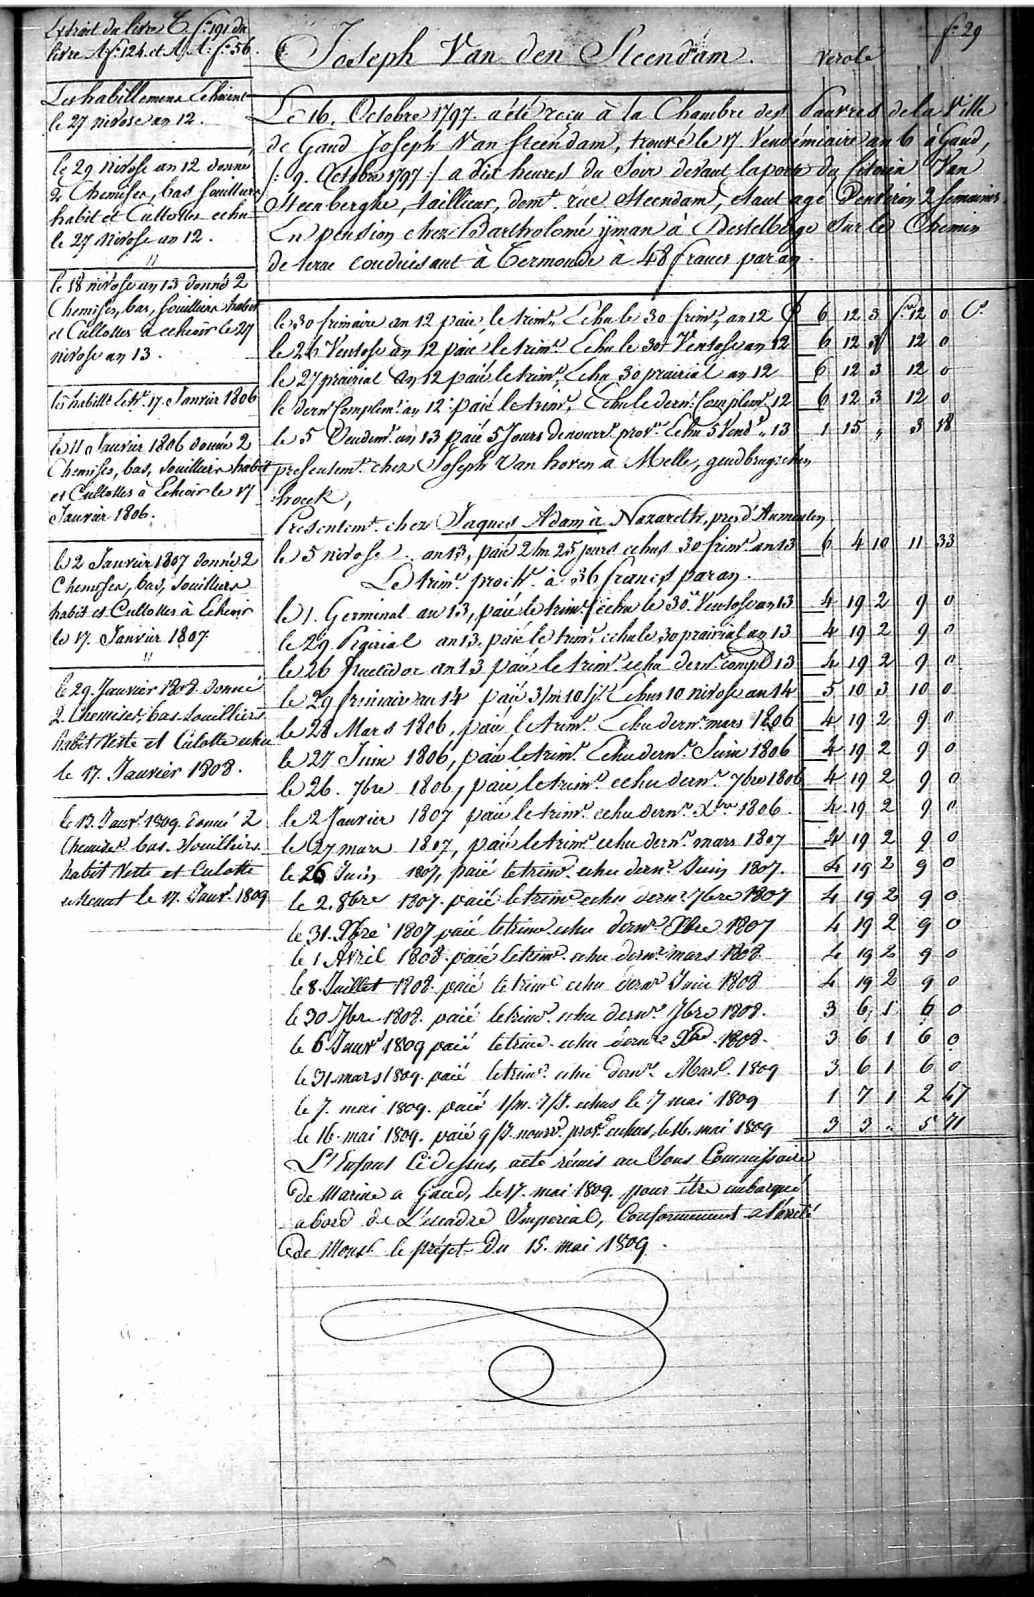 Extrait du livre C. f.° 191 du
livre A f.° 124. et A. A. f.° 56.
Les habillemens Echoient
le 27 nivose an 12.
le 29 nivose an 12 donné
2 Chemises, bas, souilliers
habit et Cullottes echu
le 27 nivose an 12.
le 18 nivose an 13 donné 2
Chemises, bas, souilliers habit
et Cullottes à echeoir le 27
nivose an 13.
les habillé Echt. 17. Janvier 1806
le 11 Janvier 1806 donné 2
Chemises, bas, souilliers habit
et Cullottes à Echeoir le 17
Janvier 1806.
le 2 Janvier 1807 donné 2
Chemises, bas, souilliers
habit et Cullottes à Echeoir
le 17. Janvier 1807
le 29. Janvier 1808. donné
2. Chemises, bas souilliers
habit Veste et Culotte echu
le 17. Janvier 1808.
le 13. Janv.r 1809. donné 2
Chemises bas souilliers
habit Veste et Culotte
le 17. Janv.r 1809
f.° 29
Joseph Van den Steendam.
Verole
Le 16. Octobre 1797. a été reçu à la Chambre des Pauvres de la Ville
de Gand Joseph Van Steendam, trouvé le 17. Vendémiaire an 6 à Gand,
/: 9. Octobre 1797 :/ a dix heures du Soir devant la porte du Citoien Van
Steenberghe, taillieur, dom.t rue Steendam, étant agé D'environ 2 semaines
En pension chez Bartholomé ÿman à Destelberge sur le Chemin
de terre conduisant à Termonde à 48 francs par an.
le 30 frimaire an 12 paié le trim.e Echu le 30 frim.e an 12 6 12 3 f.cs 12 0 C.s
le 26 Ventose an 12 paié le trim.e Echu le 30 Ventose an 12 6 12 3 12 0
le 27 prairial an 12 paié le trim.e Echu 30 prairial an 12 6 12 3 12 0
le dern.r Complim.t an 12 paié le trim.e Echu le dern.r Complim.t 12 6 12 3 12 0
le 5 Vendem.e an 13 paié 5 Jours de nourr.e prov.e Echu 5 Vend.e 13 1 15 „ 3 18
presentem.t chez Joseph Van hoven à Melle, gendbrugschen
hoek,
Presentem.t chez Jaques Adam à Nazareth, près d'Aumenten
le 5 nivose an 13, paié 2/m 25 jours echus 30 frim.e an 13 6 4 10 11 33
Le trim.e proch.e à 36 francs par an.
le 1. Germinal an 13, paié le trim.e echu le 30 Ventose an 13 4 19 2 9 0
le 29 Prairial an 13. paié le trim.e echu le 30 prairial an 13 4 19 2 9 0
le 26 fructidor an 13 paié le trim.e echu dern.r compl.t 13 4 19 2 9 0
le 29 frimaire an 14 paié 3/m 10 j.s echus 10 nivose an 14 5 10 3 10 0
le 28 Mars 1806, paié le trim.e Echu dern.r mars 1806 4 19 2 9 0
le 27 Juin 1806, paié le trim.e Echu dern.r Juin 1806 4 19 2 9 0
le 26. 7bre 1806, paié le trim.e echu dern.r 7bre 1806 4 19 2 9 0
le 2 Janvier 1807 paié le trim.e echu dern.r Xbre 1806. 4 19 2 9 0
le 27 mars 1807, paié le trim.e echu dern.r mars 1807 4 19 2 9 0
le 26 Juin 1807, paié le trim.e echu dern.r Juin 1807. 4 19 2 9 0
le 2. 8bre 1807. paié le trim.e echu dern.r 7bre 1807 4 19 2 9 0
le 31. Xbre 1807 paié le trim.e echu dern.r Xbre 1807 4 19 2 9 0
le 1 Avril 1808. paié le trim.e echu dern.r mars 1808 4 19 2 9 0
le 8. Juillet 1808. paié le trim.e echu dern.r Juin 1808 4 19 2 9 0
le 30 7bre 1808. paié le trim.e echu dern.r 7bre 1808. 3 6 1 6 0
le 6 Janv.r 1809 paié le trim.e echu dern.r Xbre 1808. 3 6 1 6 0
le 31 mars 1809. paié le trim.e echu dern.r Mars. 1809 3 6 1 6 0
le 7. mai 1809. paié 1/m. 7/J. echus le 7 mai 1809 1 7 1 2 47
le 16. mai 1809. paié 9/J. nourr.e prov.e echus, le 16. mai 1809 3 3 „ 5 71
L'Enfant Cidessus, a été rémis au Sous Commissaire
de Marine a Gand, le 17. mai 1809. pour être embarqué
abord de L'escadre Imperial, Conformement a l'arrêté
de Mons.r le préfet Du 15. mai 1809.